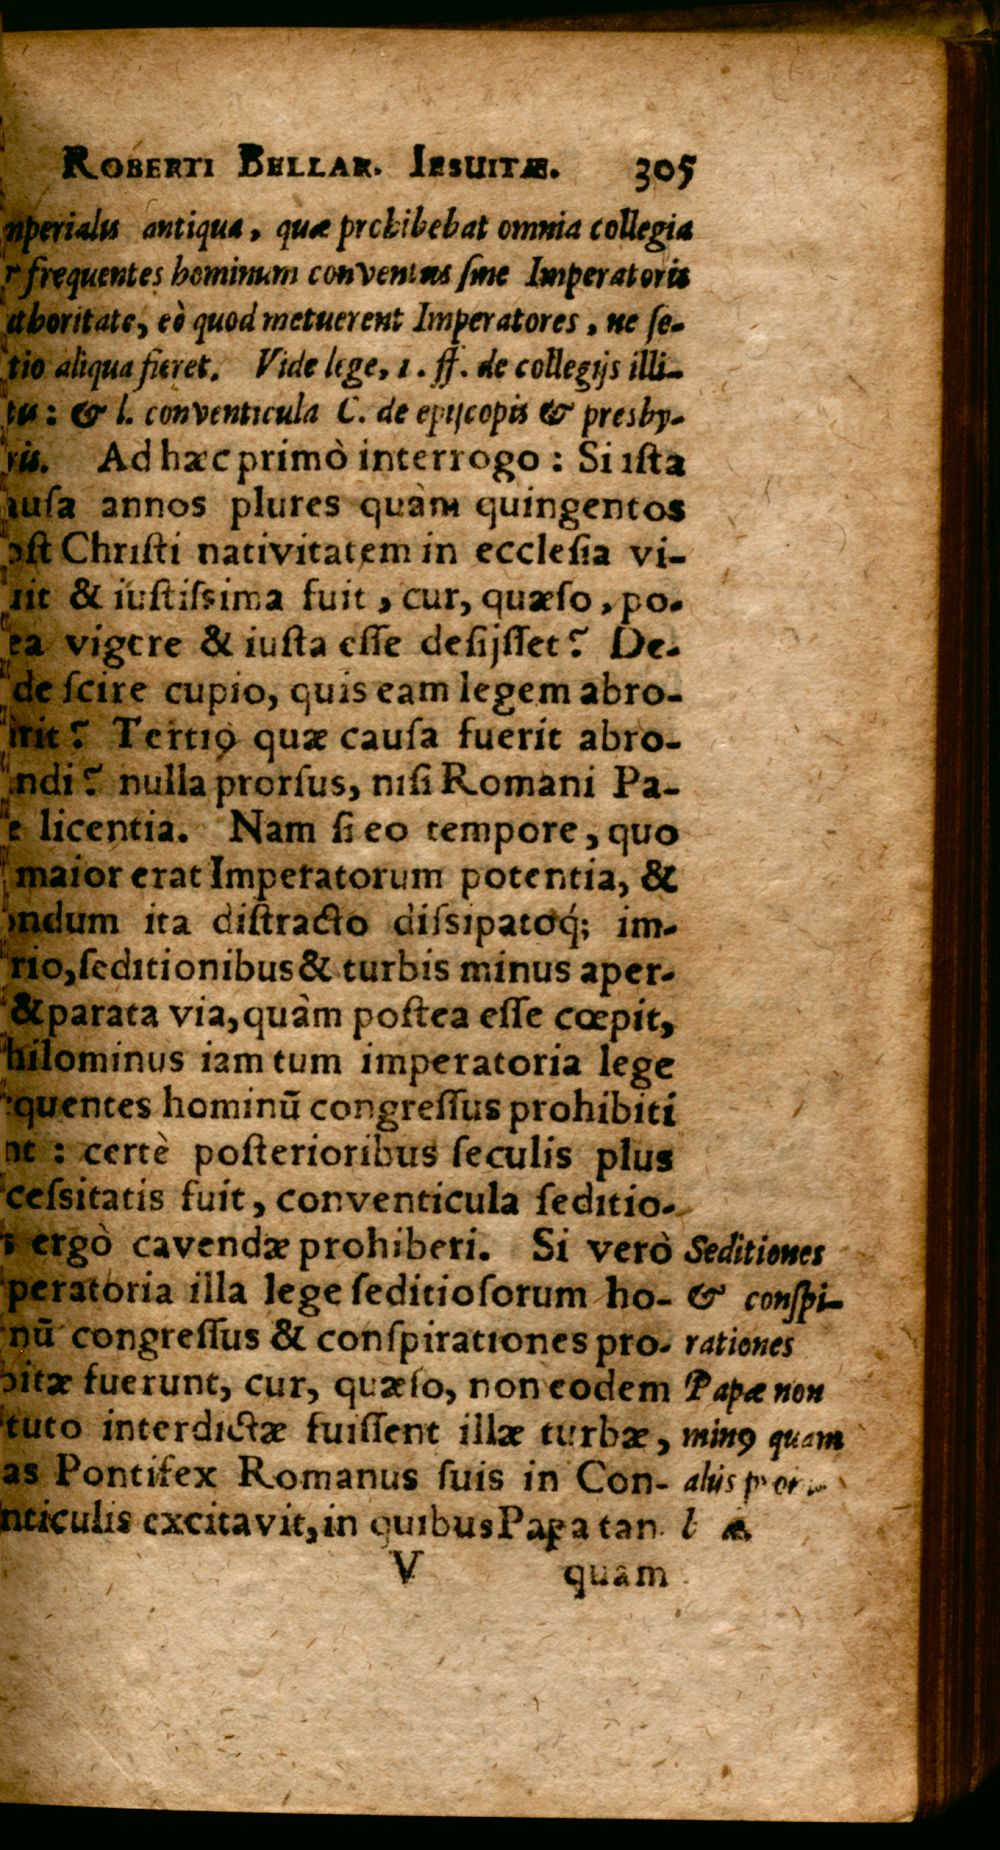 ROBERTI BELLAR. IESUITÆ. 305
nperialis antiqua, quæ prohibebat omnia collegia
r frequentes hominum conventus sine Imperatoris
uthoritate, eò quod metuerent Imperatores, ne se-
tio aliqua fieret. Vide lege, 1. ff. de collegijs illi-
tis: & l. conventicula C. de episcopis & presby-
ris. Ad hæc primò interrogo: Si ista
ausa annos plures quàm quingentos
ost Christi nativitatem in ecclesia vi-
uit & iustissima fuit, cur, quæso, po-
ea vigere & iusta esse desijsset? De-
de scire cupio, quis eam legem abro-
arit? Tertiò quæ causa fuerit abro-
ndi? nulla prorsus, nisi Romani Pa-
e licentia. Nam si eo tempore, quo
maior erat Imperatorum potentia, &
ondum ita distracto dissipatoq́; im-
rio, seditionibus & turbis minus aper-
& parata via, quàm postea esse cœpit,
hilominus iam tum imperatoria lege
equentes hominū congressus prohibiti
nt: certè posterioribus seculis plus
cessitatis fuit, conventicula seditio-
s ergò cavendæ prohiberi. Si verò
peratoria illa lege seditiosorum ho-
nū congressus & conspirationes pro-
bitæ fuerunt, cur, quæso, non eodem
tuto interdictæ fuissent illæ turbæ,
as Pontifex Romanus suis in Con-
nticulis excitavit, in quibus Papa tan
V quam
Seditiones
& conspi-
rationes
Papæ non
minꝰ quam
aliis